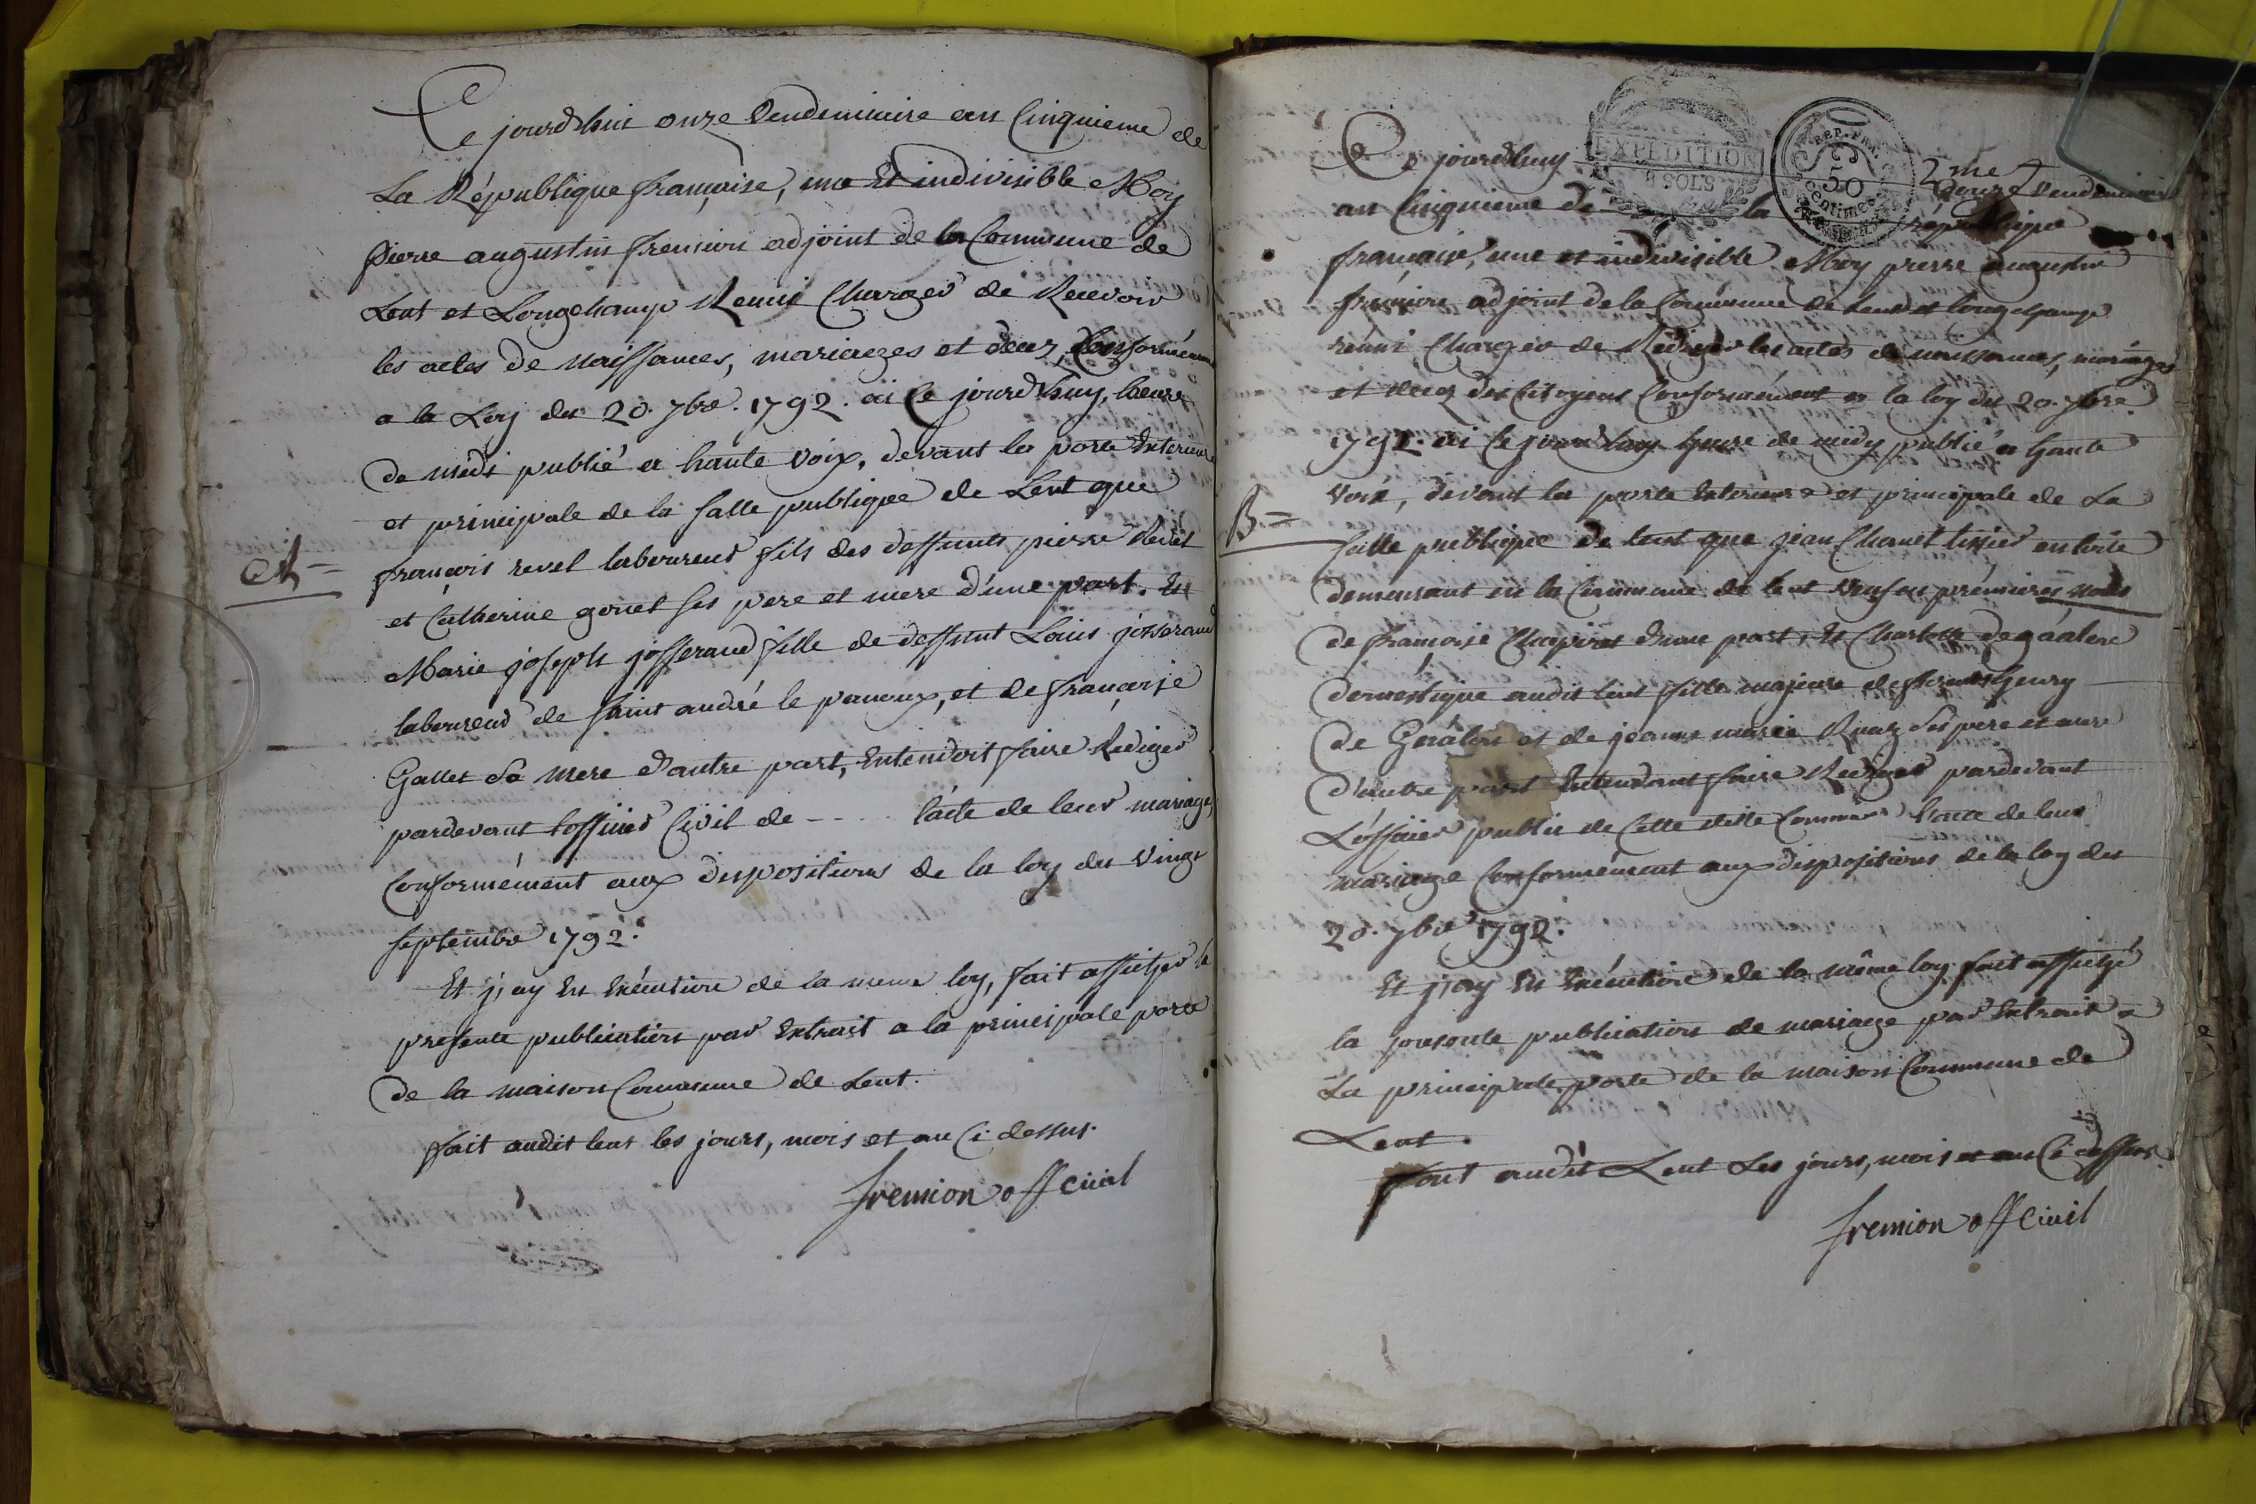 Ce jourd'huit onze Vendemiaire an Cinquieme de
La République française, une Et indivisible Moy
pierre augustin fremion adjoint de la Commune de
Lent et Longchamp Reunis Charger de Recevoir
les actes de naissances, mariages et decez, Conformément
a la Loy du 20. 7bre. 1792. ai Ce jourd'huy, heure
de midi publié a haute voix, devant la porte Exterieure
et principale de la salle publique de Lent que
A=
françois revel laboureur fils des deffunts pierre Revel
et Catherine gonet ses pere et mere d'une part. Et
Marie joseph josserand fille de deffunt Louis josserand
laboureur de saint andré le panoux, et de françoise
Gallet Sa mere d'autre part, Entendoit faire Rediger
pardevant l'officier Civil de - - . . l'acte de leur mariage,
Conformément aux dispositions de la loy du vingt
septembre 1792.
Et j'ay En Exécution de la meme loy, fait afficher la
presente publication par Extrait a la principale porte
de la maison Commune de Lent.
fait audit lent les jours, mois et an Ci dessus.
fremion off civil
EXPEDITION
8 SOLS
REP. FRA.
50
centimes
2me
Ce jourd'huy douze Vendemiaire
an Cinquieme de la république
française, une et indivisible Moy pierre augustin
fremion adjoint de la Commune de Lent et longchamp
réuni Charger de Rediger les actes de naissances, mariages
et decez des Citoyens Conformément a la loy du 20. 7bre
1792. ai Ce jourd'huy heure de midy publié a haute
voix, devant la porte Exterieure et principale de La
B=
salle publique de lent que jean Chanel tissier en toile
demeurant en la Commune de lent veuf en premieres nôces
de françoise d'une part, Et Charlotte
domestique audit lent fille majeure de henry
De et de jeanne marie Ruaz Ses pere et mere
D'autre part Entendant faire Rediger pardevant
L'officier public de Cette ditte Commune l'acte de leur
mariage Conformément aux dispositions de la loy du
20. 7bre 1792.
Et j'ay En Exécution de la même loy fait affiché
la presente publication de mariage par Extrait a
La principale porte de la maison Commune de
Lent.
fait audit Lent Les jours, mois et an Ci dessus.
fremion off civil